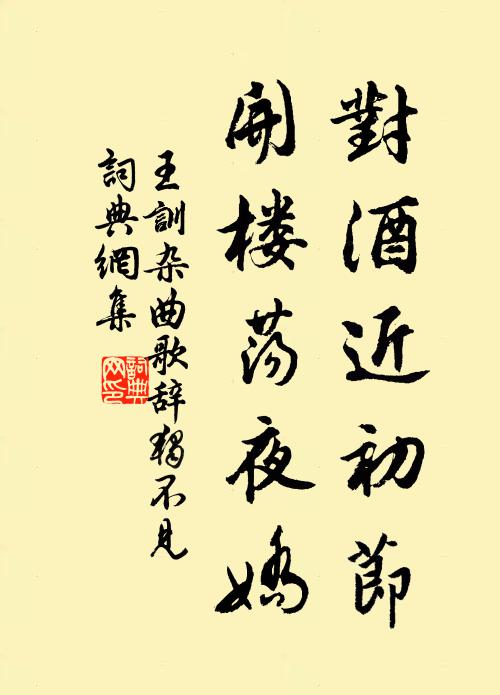 對酒近初節
開楼荡夜嬌
王訓杂曲歌辞獨不見
詞典網集
詞典網印